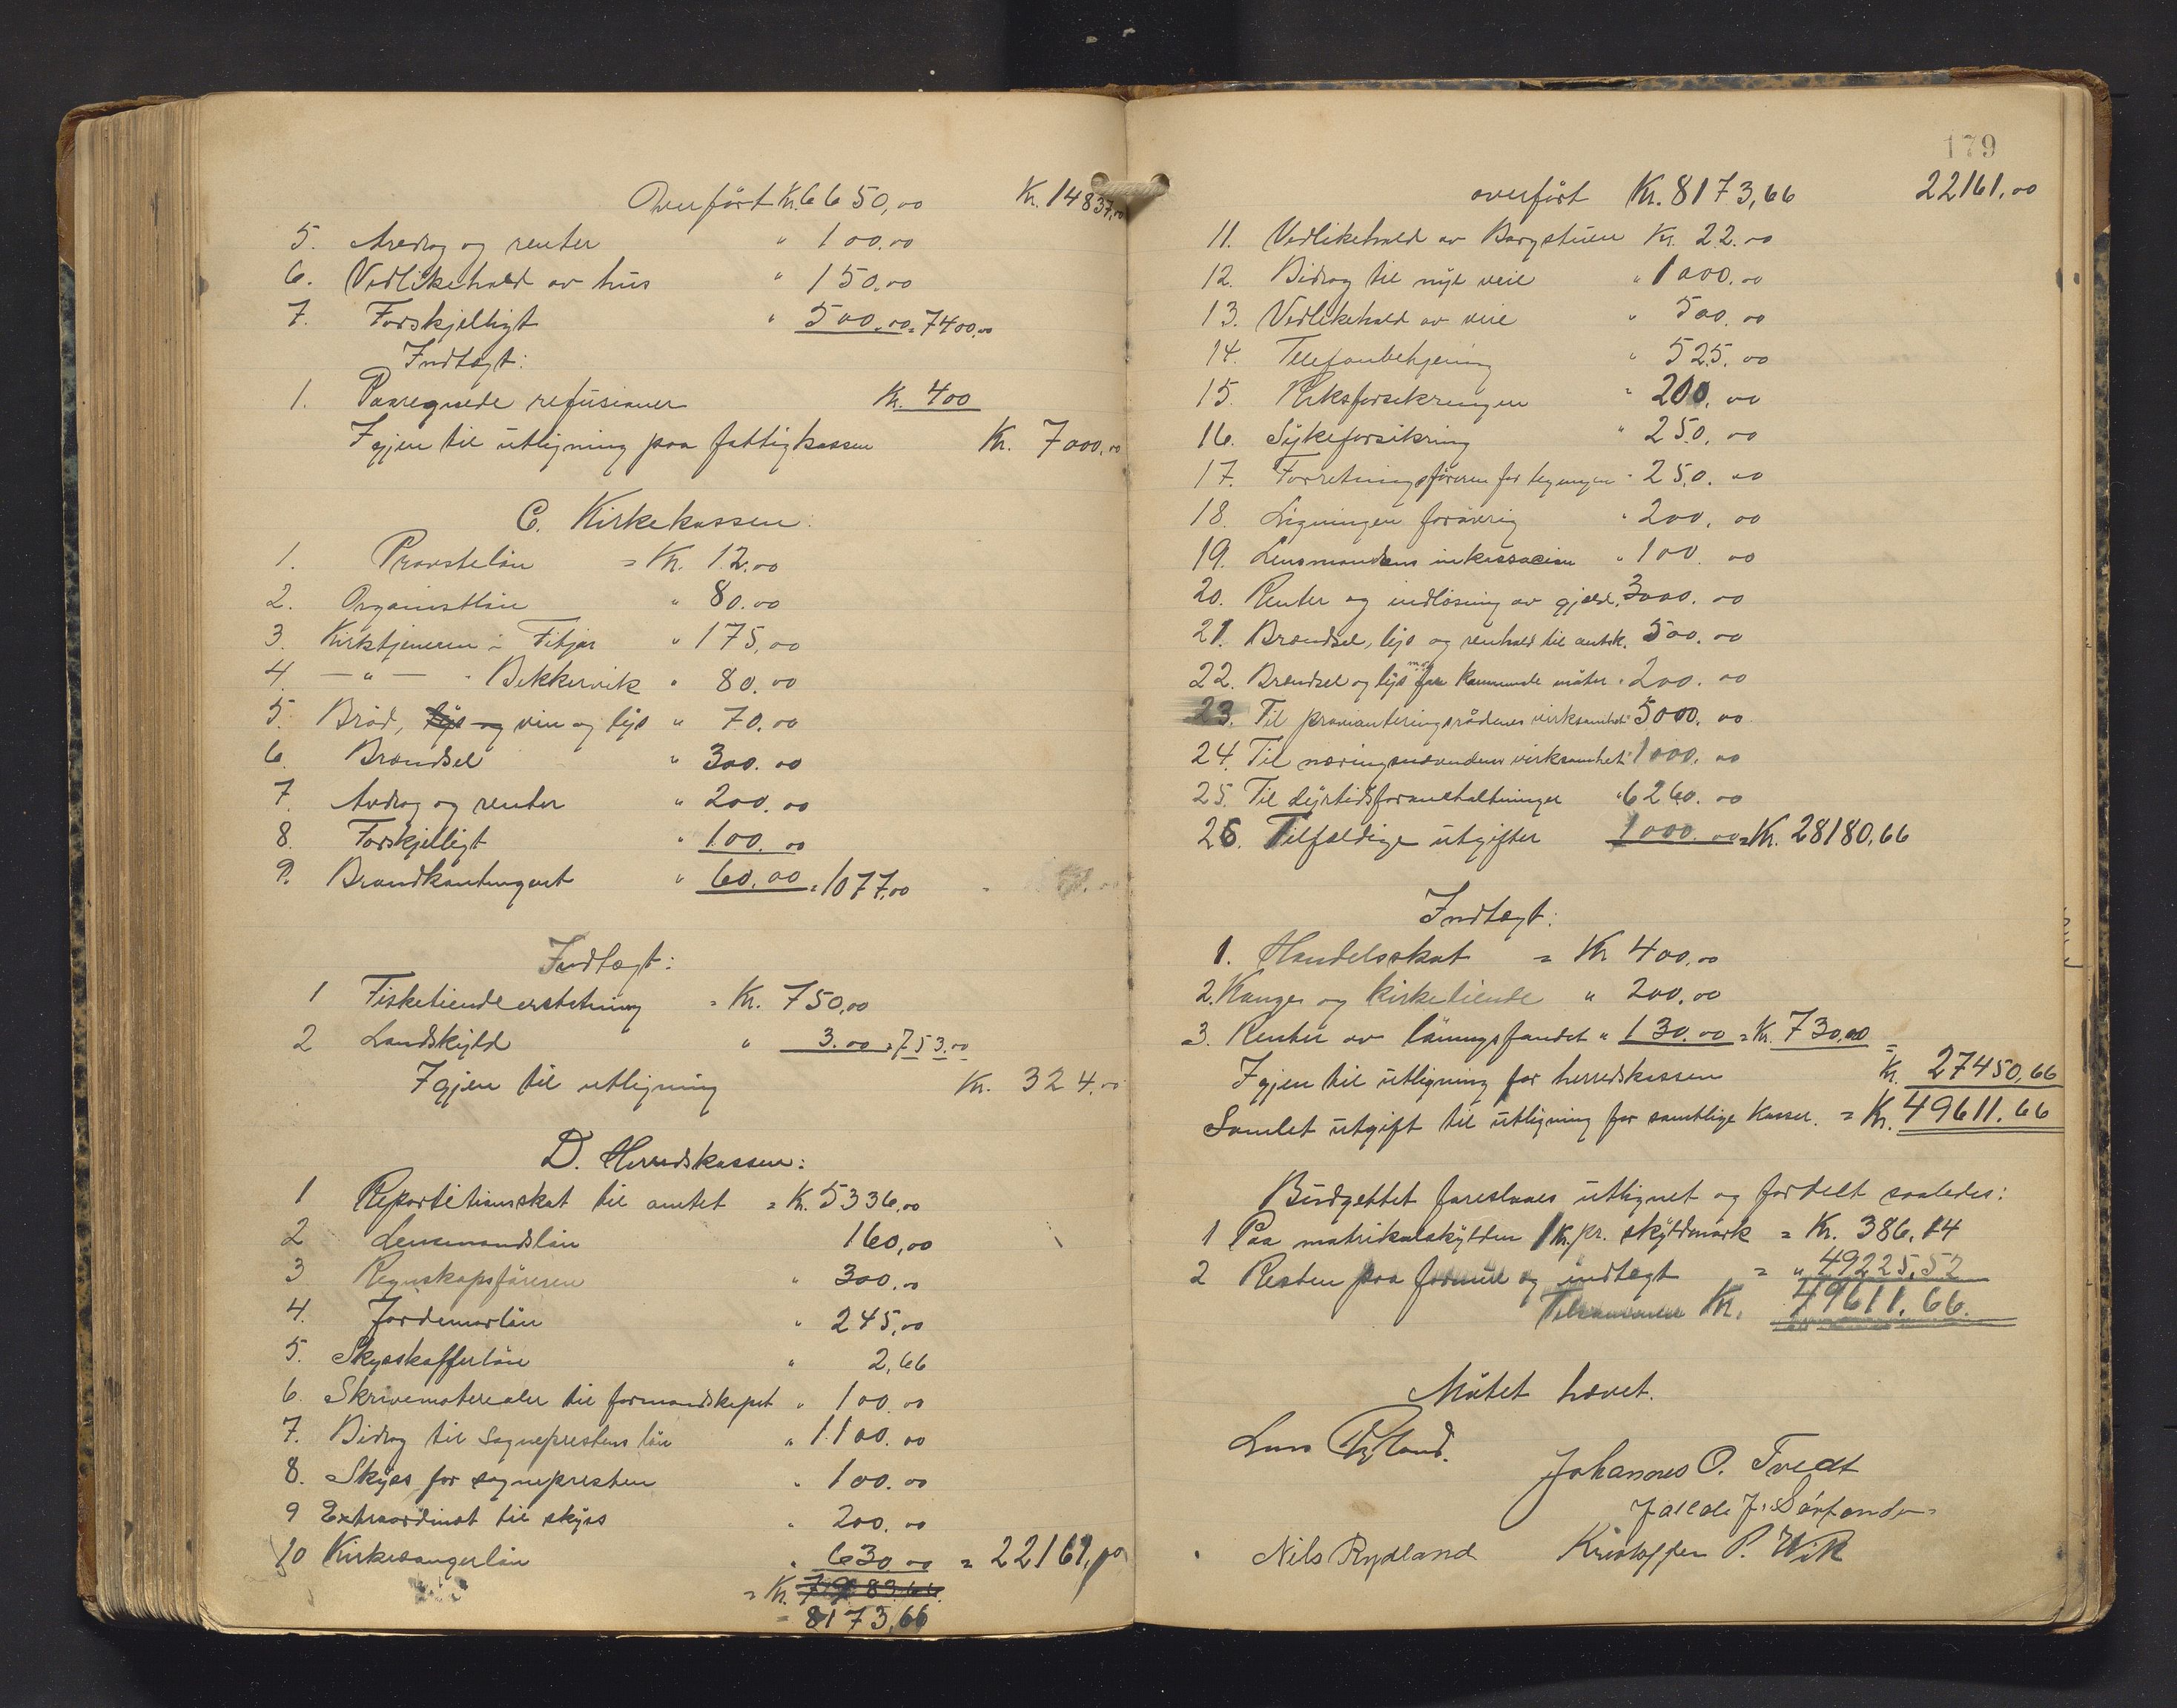 Overført Kr. 6650,00 Kr. 14837,00
5. Avdrag og renter " 100.00
6. Vedlikehold av hus " 150.00
7. Forskjelligt " 500.00 = 7400.00
Indtægt:
1. Paaregnede refusioner Kr. 400
Igjen til utligning paa fattigkassen Kr. 7000.00
C. Kirkekassen:
1. Provstelön = Kr. 12.00
2. Organistlön " 80.00
3. Kirketjeneren i Fitjar " 175,00
4. — " — " Bekkervik " 80.00
5 Bröd, lys og vin og lys " 70.00
6. Brændsel " 300.00
7. Avdrag og renter " 200.00
8. Forskjelligt " 100.00
9. Brandkontingent " 60.00 = 1077,00
Indtægt:
1 Fisketiendeerstatning = Kr. 750,00
2 Landskyld " 3.00 = 753.00
Igjen til utligning Kr. 324.00
D. Herredskassen:
1 Repartitionsskat til amtet = Kr. 5336,00
2 Lensmandslön 160,00
3 Regnskapsföreren " 300.00
4. Jordemorlön " 245,00
5. Skysskafferlön " 2,66
6. Skrivematerealer til formandskapet " 100.00
7. Bidrag til Sogneprestens lön " 1100.00
8. Skyss for sognepresten " 100.00
9 Extraordinært til skyss " 200.00
10 Kirkesangerlön " 630.00 = 22161,00
= Kr.
= 8173,66
179
overført Kr. 8173,66 22161,00
11. Vedlikehold av Borgstuen Kr. 22.00
12. Bidrag til nye veie " 1000.00
13. Vedlikehold av veie " 500.00
14. Telefonbetjening " 525.00
15. Riksforsikringen " 200.00
16. Sykeforsikring " 250,00
17. Forretningsföreren for " 250.00
18. Ligningen forövrig " 200,00
19. Lensmandens inkassation " 100 00
20. Renter og indlösning av gjæld. 3000.00
21. Brændsel, lys og renhold til amtsk. 500.00
22. Brændsel og lys for kommunale möter " 200.00
23. Til provianteringsrådenes virksomhet " 5000.00
24. Til næringsnævndens virksomhet " 1000.00
25. Til dyrtidsforanstaltninger " 6260.00
26. Tilfældige utgifter 1000.00 = Kr. 28180,66
Indtægt:
1. Handelsskat = Kr 400.00
2. Konge og kirketiende " 200,00
3. Renter av låningsfondet " 130.00 = Kr. 730,00 =
Igjen til utligning for herredskassen Kr. 27450,66
Samlet utgift til utligning for samtlige kasser. = Kr. 49611.66
Budgettet foreslaaes utlignet og fordelt saaledes:
1 Paa matrikulskylden 1 Kr. pr. skyldmark = Kr. 386,14
2 Resten paa formue og indtægt = " 49225,52
Tilsammen Kr. 49611.66.
Mötet hævet.
Lars Rydland.
Johannes O. Tvedt
Nils Rydland Kristoffer P. Wik